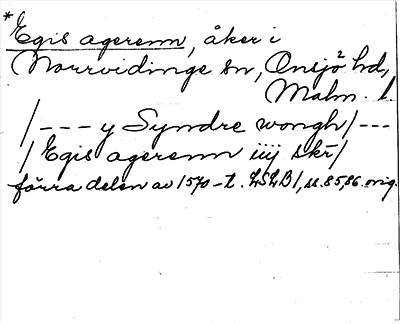 *Egis agerenn, åker i
Norrvidinge sn, Onsjö hd,
Malm. l.
/--- y Syndre wongh/---
/Egis agerenn iiij skr/
förra delen av 1570-t. LSLB1, ss.85,86. orig.